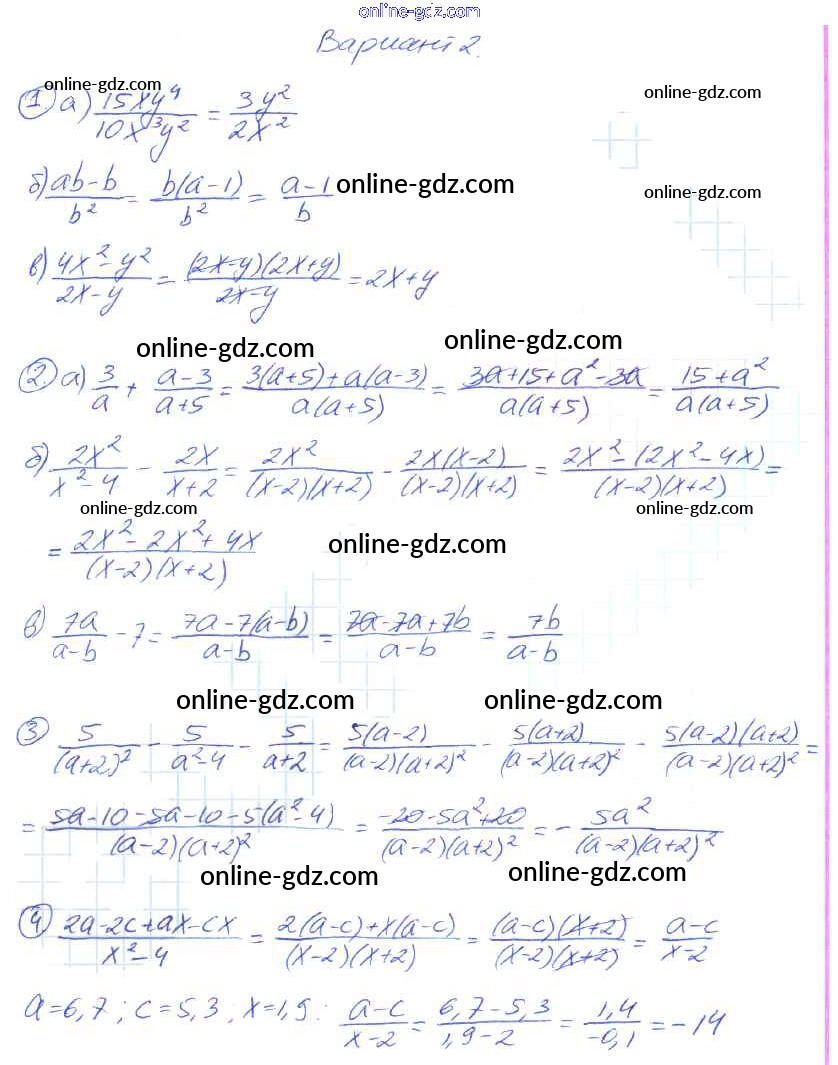 online-gdz.com
Вариант 2.
online-gdz.com
online-gdz.com
① а) 15xy⁴/10x³y² = 3y²/2x²
б) ab-b/b² = b(a-1)/b² = a-1/b
online-gdz.com
online-gdz.com
в) 4x²-y²/2x-y = (2x-y)(2x+y)/2x-y = 2x+y
online-gdz.com
online-gdz.com
② а) 3/a + a-3/a+5 = 3(a+5)+a(a-3)/a(a+5) = 3a+15+a²-3a/a(a+5) = 15+a²/a(a+5)
б) 2x²/x²-4 - 2x/x+2 = 2x²/(x-2)(x+2) - 2x(x-2)/(x-2)(x+2) = 2x²-(2x²-4x)/(x-2)(x+2) =
online-gdz.com
online-gdz.com
= 2x²-2x²+4x/(x-2)(x+2)
online-gdz.com
в) 7a/a-b - 7 = 7a-7(a-b)/a-b = 7a-7a+7b/a-b = 7b/a-b
online-gdz.com
online-gdz.com
③ 5/(a+2)² - 5/a²-4 - 5/a+2 = 5(a-2)/(a-2)(a+2)² - 5(a+2)/(a-2)(a+2)² - 5(a-2)(a+2)/(a-2)(a+2)² =
= 5a-10-5a-10-5(a²-4)/(a-2)(a+2)² = -20-5a²+20/(a-2)(a+2)² = - 5a²/(a-2)(a+2)²
online-gdz.com
online-gdz.com
④ 2a-2c+ax-cx/x²-4 = 2(a-c)+x(a-c)/(x-2)(x+2) = (a-c)(x+2)/(x-2)(x+2) = a-c/x-2
a=6,7; c=5,3; x=1,9: a-c/x-2 = 6,7-5,3/1,9-2 = 1,4/-0,1 = -14